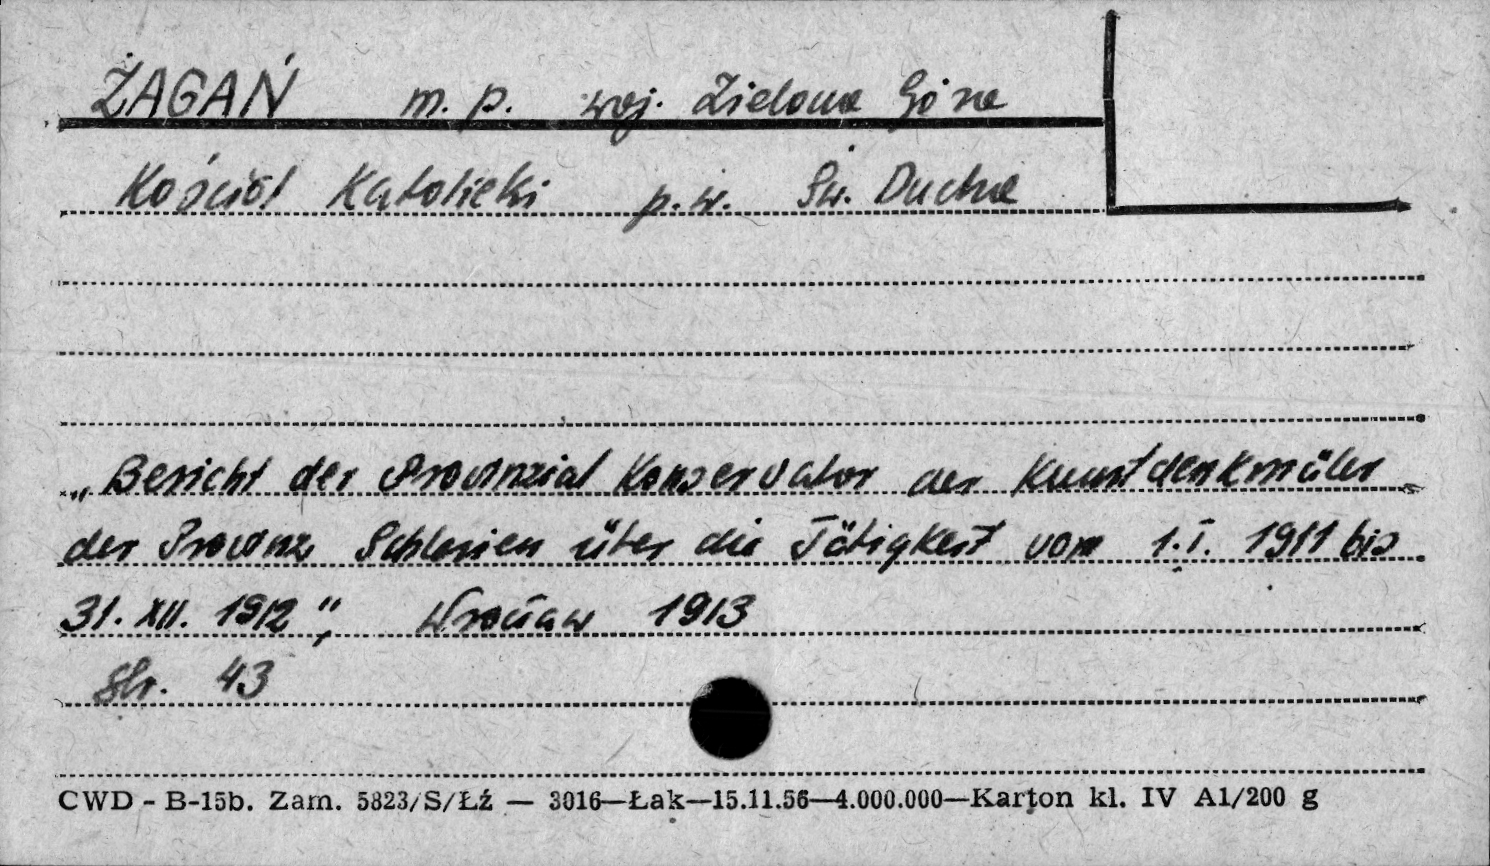 ŻAGAŃ m. p. woj. Zielona Góra
Kościół Katolicki p.w. Św. Ducha
„Bericht der Provinzial Konservator der Kunstdenkmäler
der Provinz Schlesien über die Tätigkeit vom 1.I. 1911 bis
31. XII. 1912", Wrocław 1913
Str. 43
CWD - B-15b. Zam. 5823/S/Łź — 3016—Łak—15.11.56—4.000.000—Karton kl. IV A1/200 g